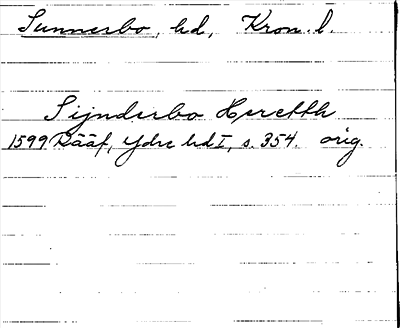 Sunnerbo, hd, Kron. l.
Sijnderbo Heretth
1599 Rääf, Ydre hd I, s. 354. orig.